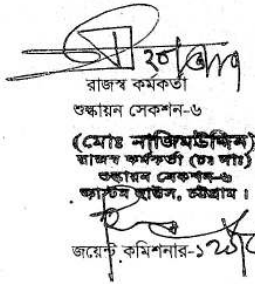 রাজস্ব কর্মকর্তা
শুল্কায়ন সেকশন-৬
(মোঃ নাজিমউদ্দিন)
রাজস্ব কর্মকর্তা (চঃ দাঃ)
শুল্কায়ন সেকশন-৬
কাস্টম হাউস, চট্টগ্রাম।
জয়েন্ট কমিশনার-১